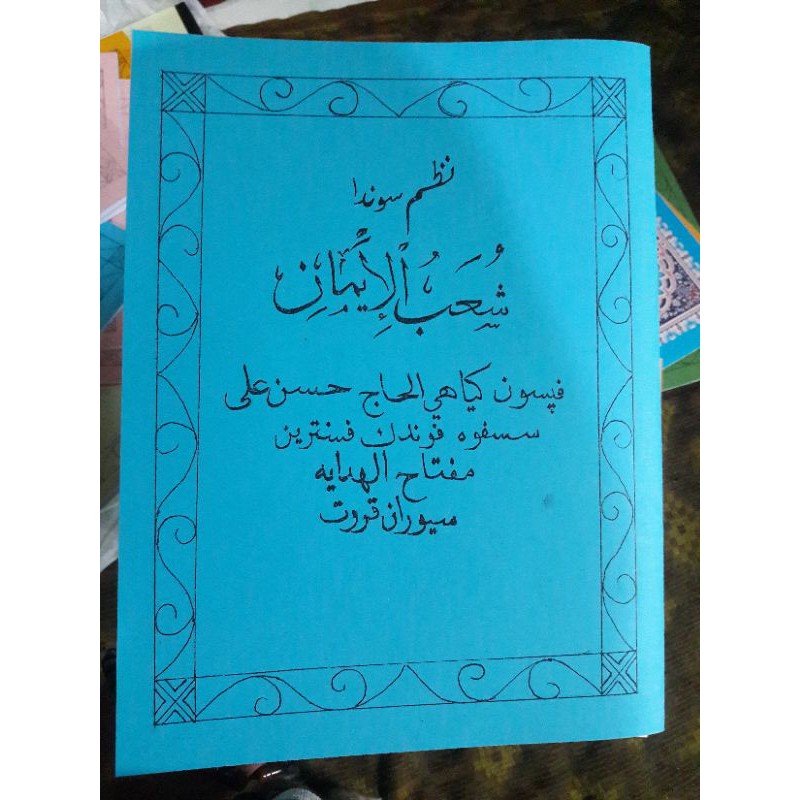 نظم سوندا
شُعَبُ الْإِيْمَانِ
فپسون كياهي الحاج حسن على
سسفوه فوندك فسنترين
مفتاح الهدايه
سيوران قروت